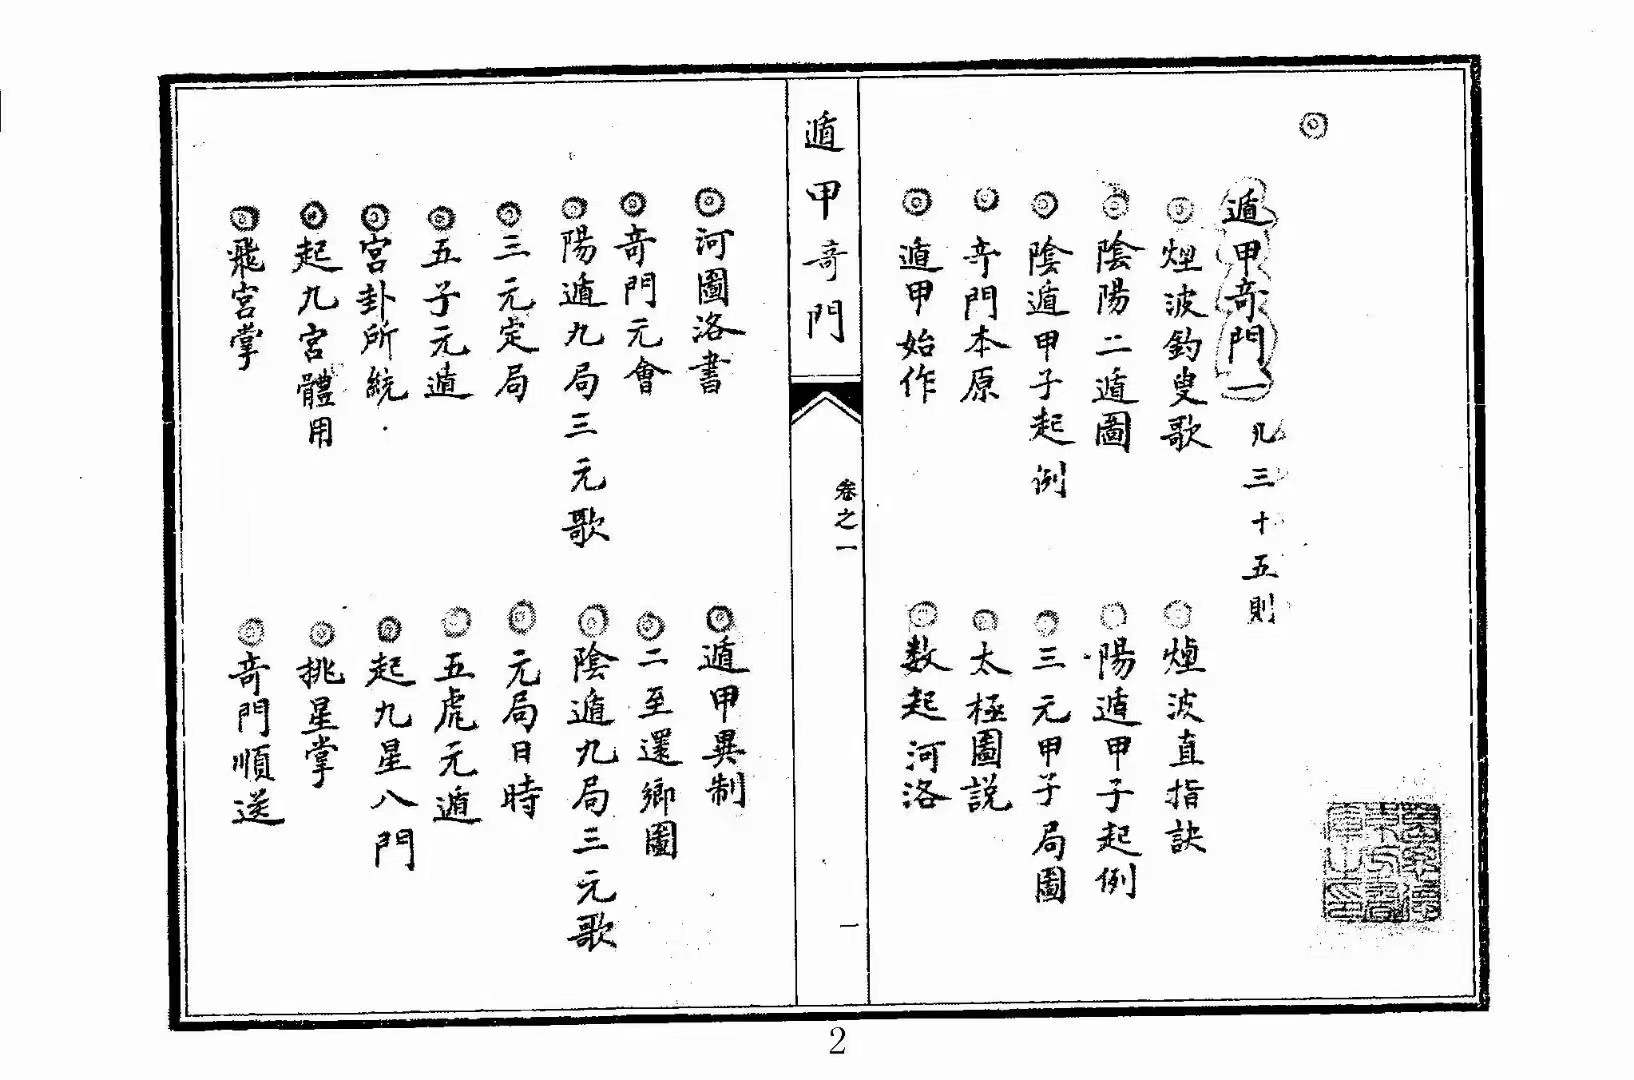 遁甲奇門一 凡三十五則
煙波釣叟歌 煙波直指訣
陰陽二遁圖 陽遁甲子起例
陰遁甲子起例 三元甲子局圖
奇門本原 太極圖説
遁甲始作 数起河洛
遁甲奇門 卷之一 一
河圖洛書 遁甲異制
奇門元會 二至還鄉圖
陽遁九局三元歌 陰遁九局三元歌
三元定局 元局日時
五子元遁 五虎元遁
宮卦所統 起九星八門
起九宮體用 挑星掌
飛宮掌 奇門順逆
2